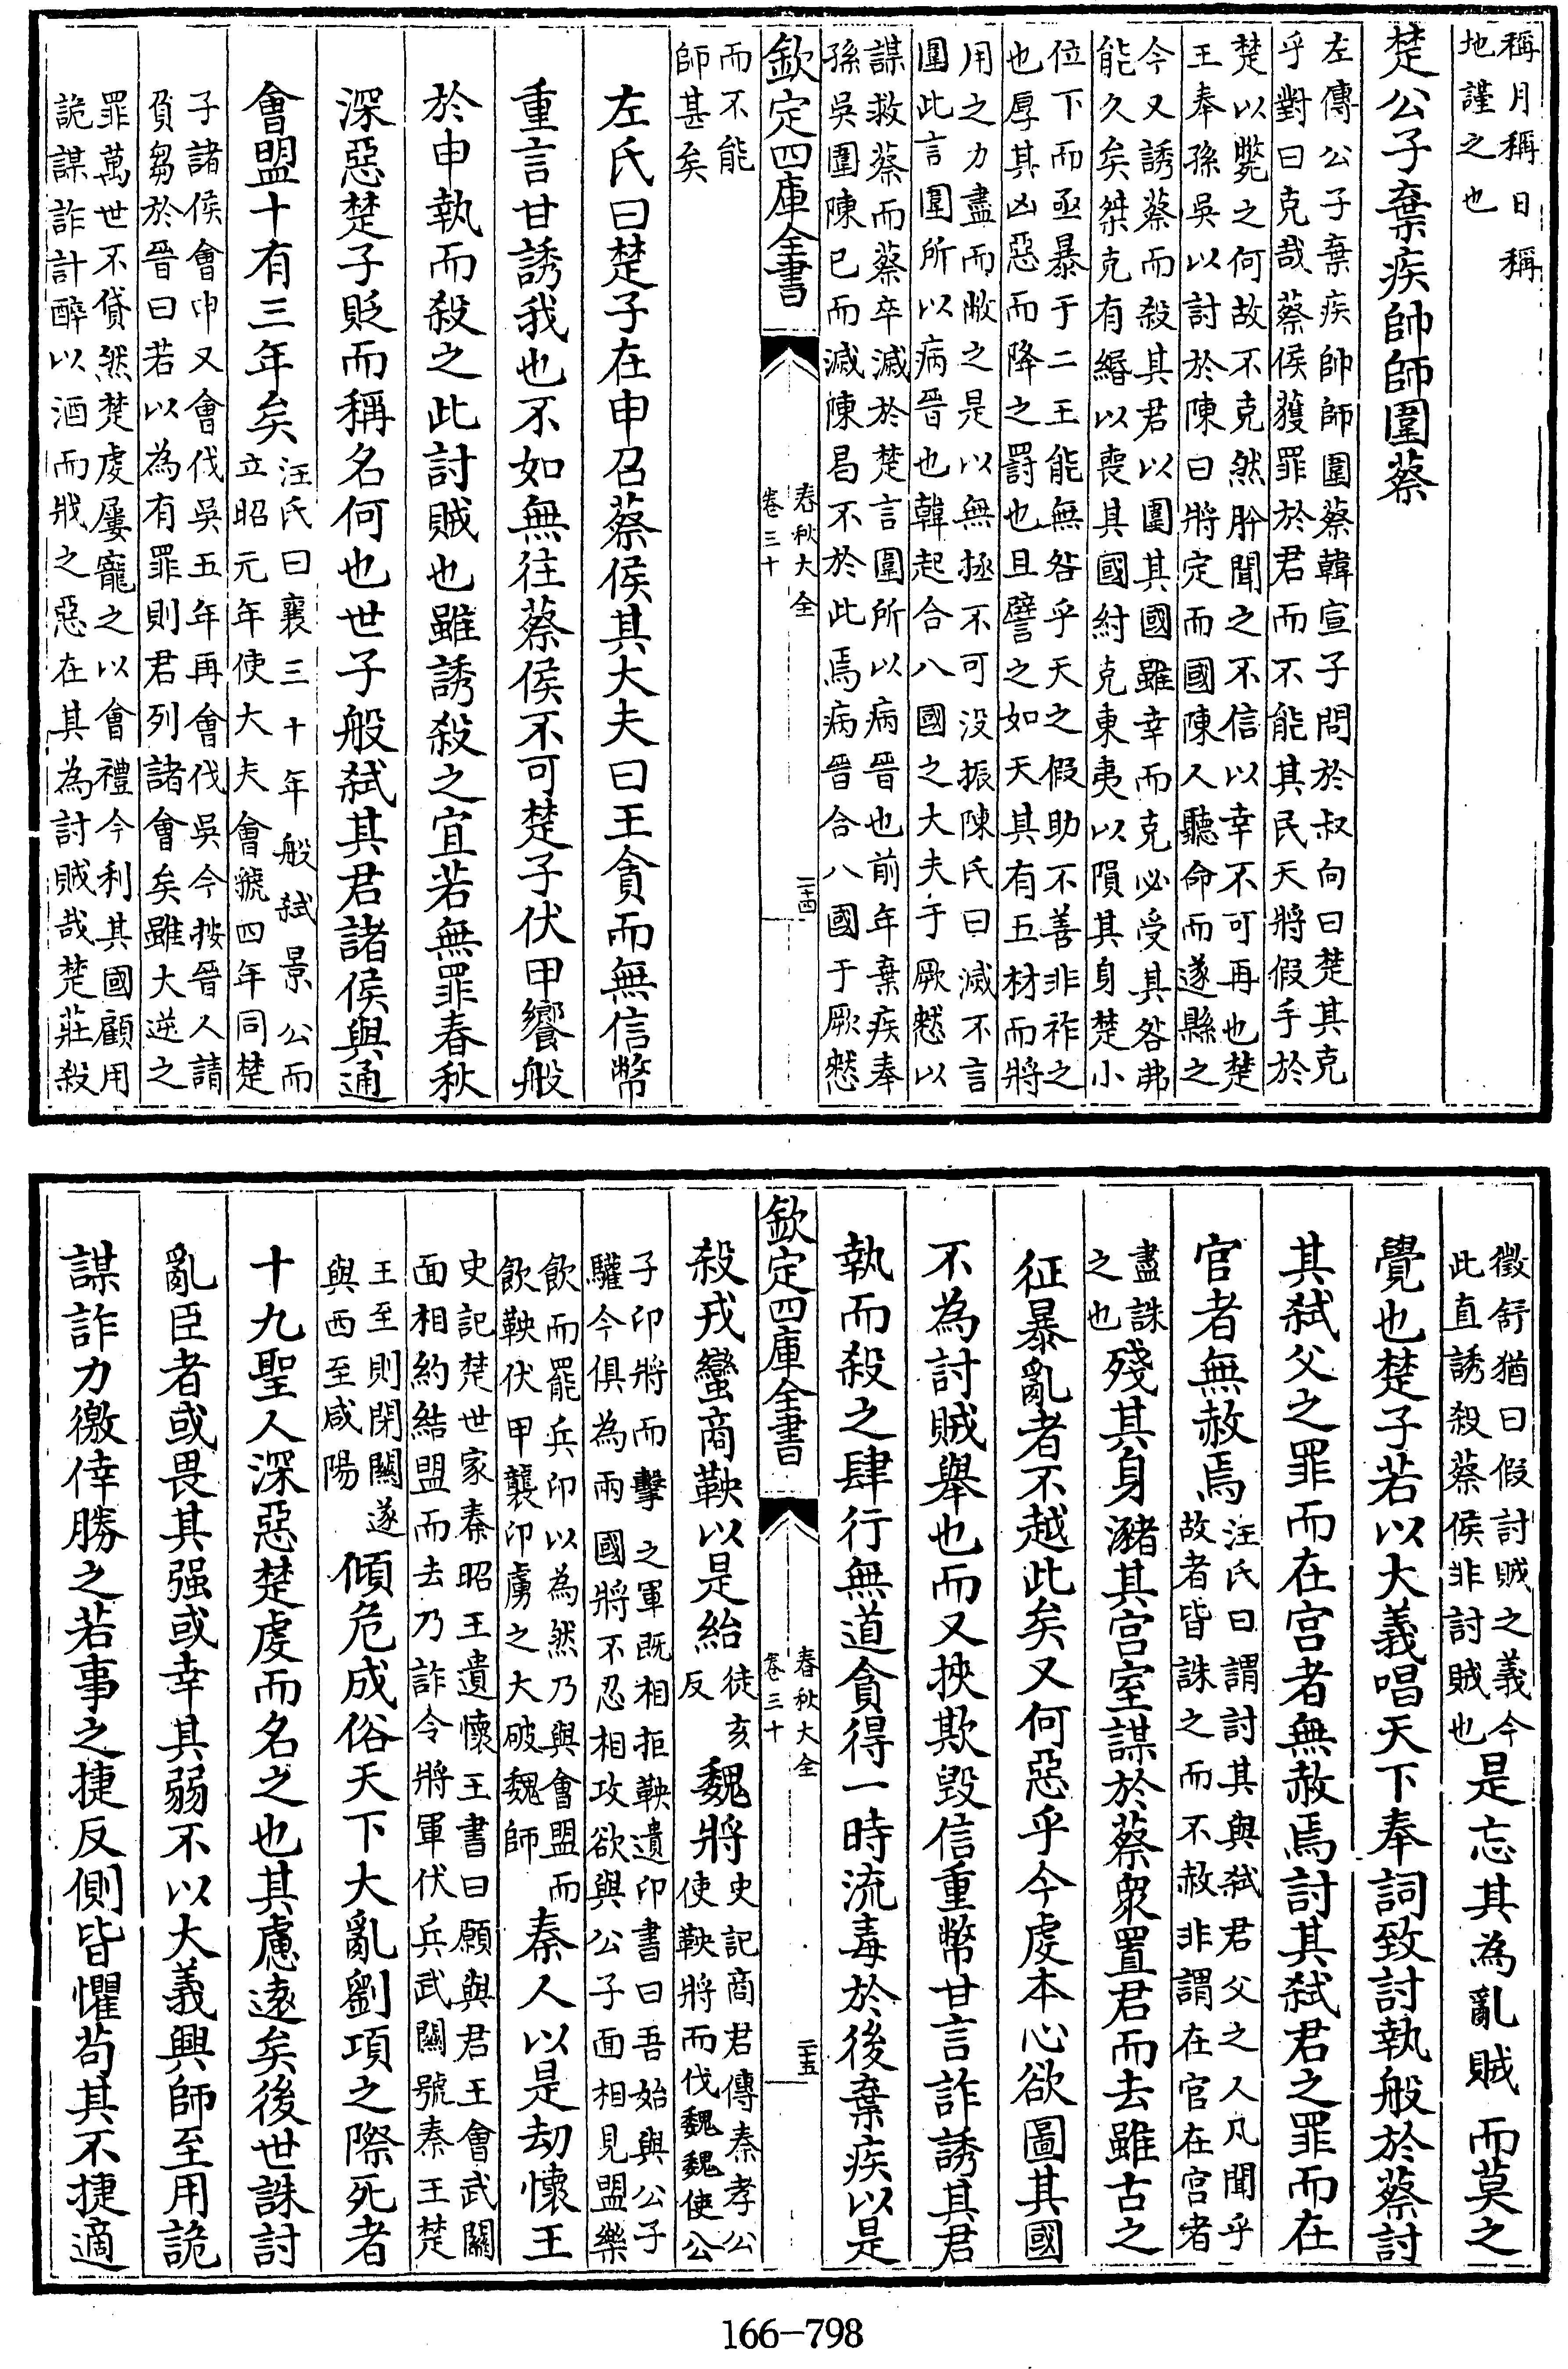 稱月稱日稱
地謹之也
楚公子棄疾帥師圍蔡
左傳公子棄疾帥師圍蔡韓宣子問於叔向曰楚其克
乎對曰克哉蔡侯獲罪於君而不能其民天將假手於
楚以斃之何故不克然肸聞之不信以幸不可再也楚
王奉孫吳以討於陳曰將定而國陳人聽命而遂縣之
今又誘蔡而殺其君以圍其國雖幸而克必受其咎弗
能久矣桀克有緡以喪其國紂克東夷以隕其身楚小
位下而亟暴于二王能無咎乎天之假助不善非祚之
也厚其凶惡而降之罰也且譬之如天其有五材而將
用之力盡而敝之是以無拯不可没振陳氏曰滅不言
圍此言圍所以病晉也韓起合八國之大夫于厥憖以
謀救蔡而蔡卒滅於楚言圍所以病晉也前年棄疾奉
孫吳圍陳已而滅陳曷不於此焉病晉合八國于厥憖
欽定四庫全書
春秋大全
卷三十
二十四
而不能
師甚矣
左氏曰楚子在申召蔡侯其大夫曰王貪而無信幣
重言甘誘我也不如無往蔡侯不可楚子伏甲饗般
於申執而殺之此討賊也雖誘殺之宜若無罪春秋
深惡楚子貶而稱名何也世子般弑其君諸侯與通
會盟十有三年矣
汪氏曰襄三十年般弑景公而
立昭元年使大夫會虢四年同楚
子諸侯會申又會伐吳五年再會伐吳今按晉人請
負芻於晉曰若以為有罪則君列諸會矣雖大逆之
罪萬世不貸然楚虔屢寵之以會禮今利其國顧用
詭謀詐計醉以酒而戕之惡在其為討賊哉楚莊殺
徵舒猶曰假討賊之義今
此直誘殺蔡侯非討賊也
是忘其為亂賊而莫之
覺也楚子若以大義唱天下奉詞致討執般於蔡討
其弑父之罪而在宫者無赦焉討其弑君之罪而在
官者無赦焉
汪氏曰謂討其與弑君父之人凡聞乎
故者皆誅之而不赦非謂在官在宫者
盡誅
之也
殘其身瀦其宫室謀於蔡衆置君而去雖古之
征暴亂者不越此矣又何惡乎今虔本心欲圖其國
不為討賊舉也而又挾欺毀信重幣甘言詐誘其君
執而殺之肆行無道貪得一時流毒於後棄疾以是
欽定四庫全書
春秋大全
卷三十
二十五
殺戎蠻商鞅以是紿
徒亥
反
魏將
史記商君傳秦孝公
使鞅將而伐魏魏使公
子卬將而擊之軍既相拒鞅遺卬書曰吾始與公子
驩今俱為兩國將不忍相攻欲與公子面相見盟樂
飲而罷兵卬以為然乃與會盟而
飲鞅伏甲襲卬虜之大破魏師
秦人以是劫懷王
史記楚世家秦昭王遺懷王書曰願與君王會武關
面相約結盟而去乃詐令將軍伏兵武關號秦王楚
王至則閉關遂
與西至咸陽
傾危成俗天下大亂劉項之際死者
十九聖人深惡楚虔而名之也其慮遠矣後世誅討
亂臣者或畏其强或幸其弱不以大義興師至用詭
謀詐力徼倖勝之若事之捷反側皆懼茍其不捷適
166-798